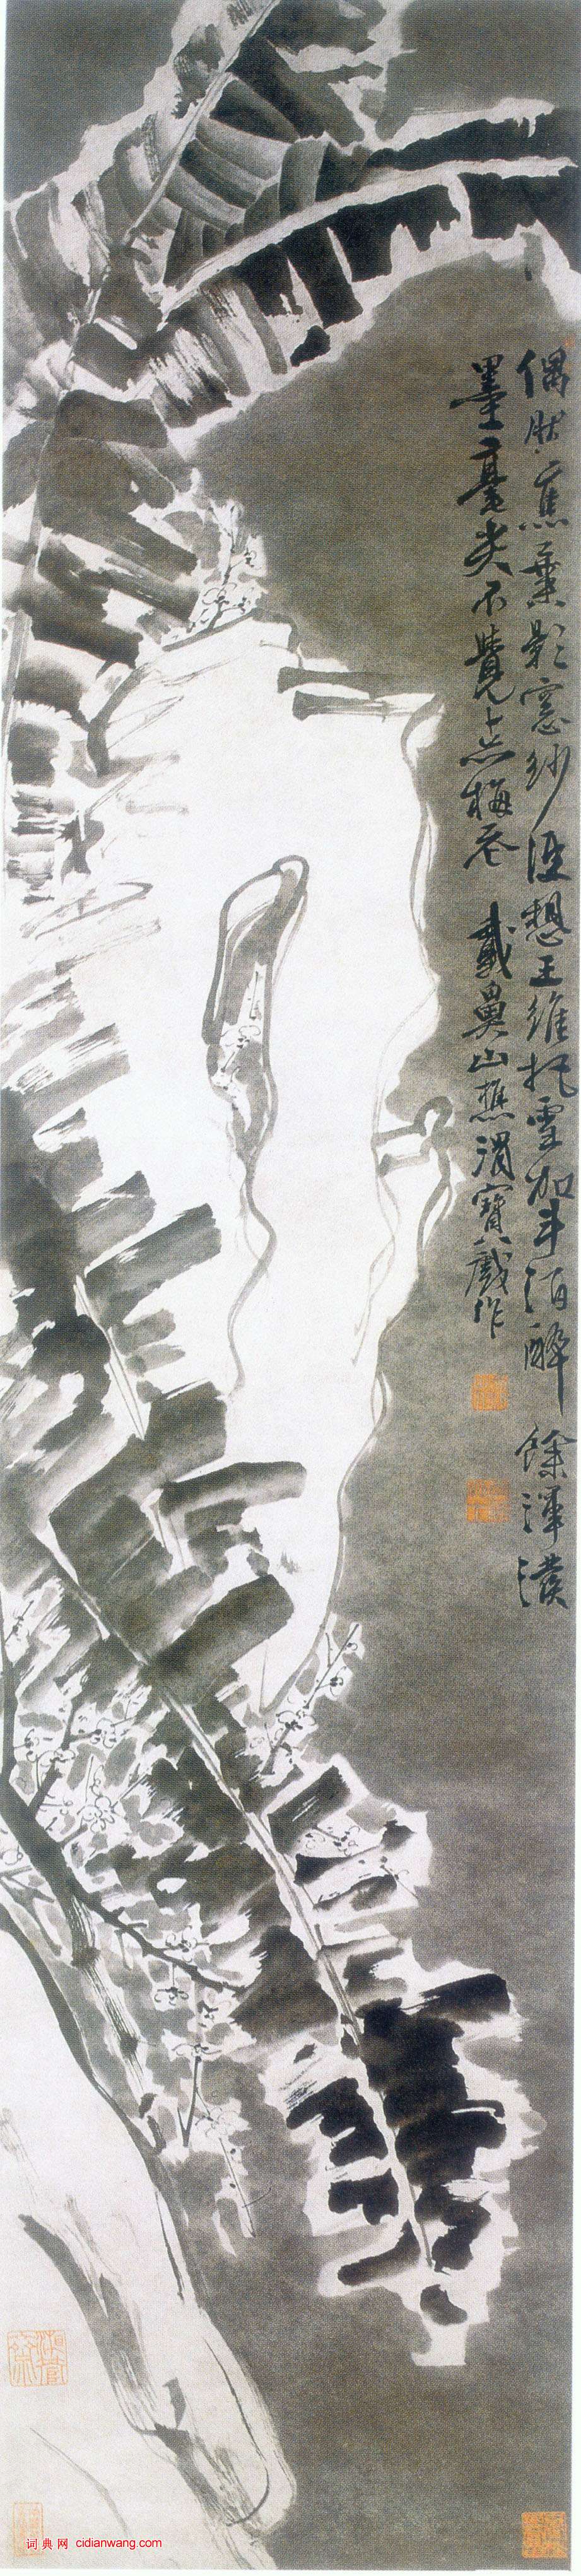 偶然蕉葉影窓紗想王維托雪加斗酒醉餘渾潑
墨毫尖不覺梅花 戴鼻山樵渭戲作
词典网 cidianwang.com